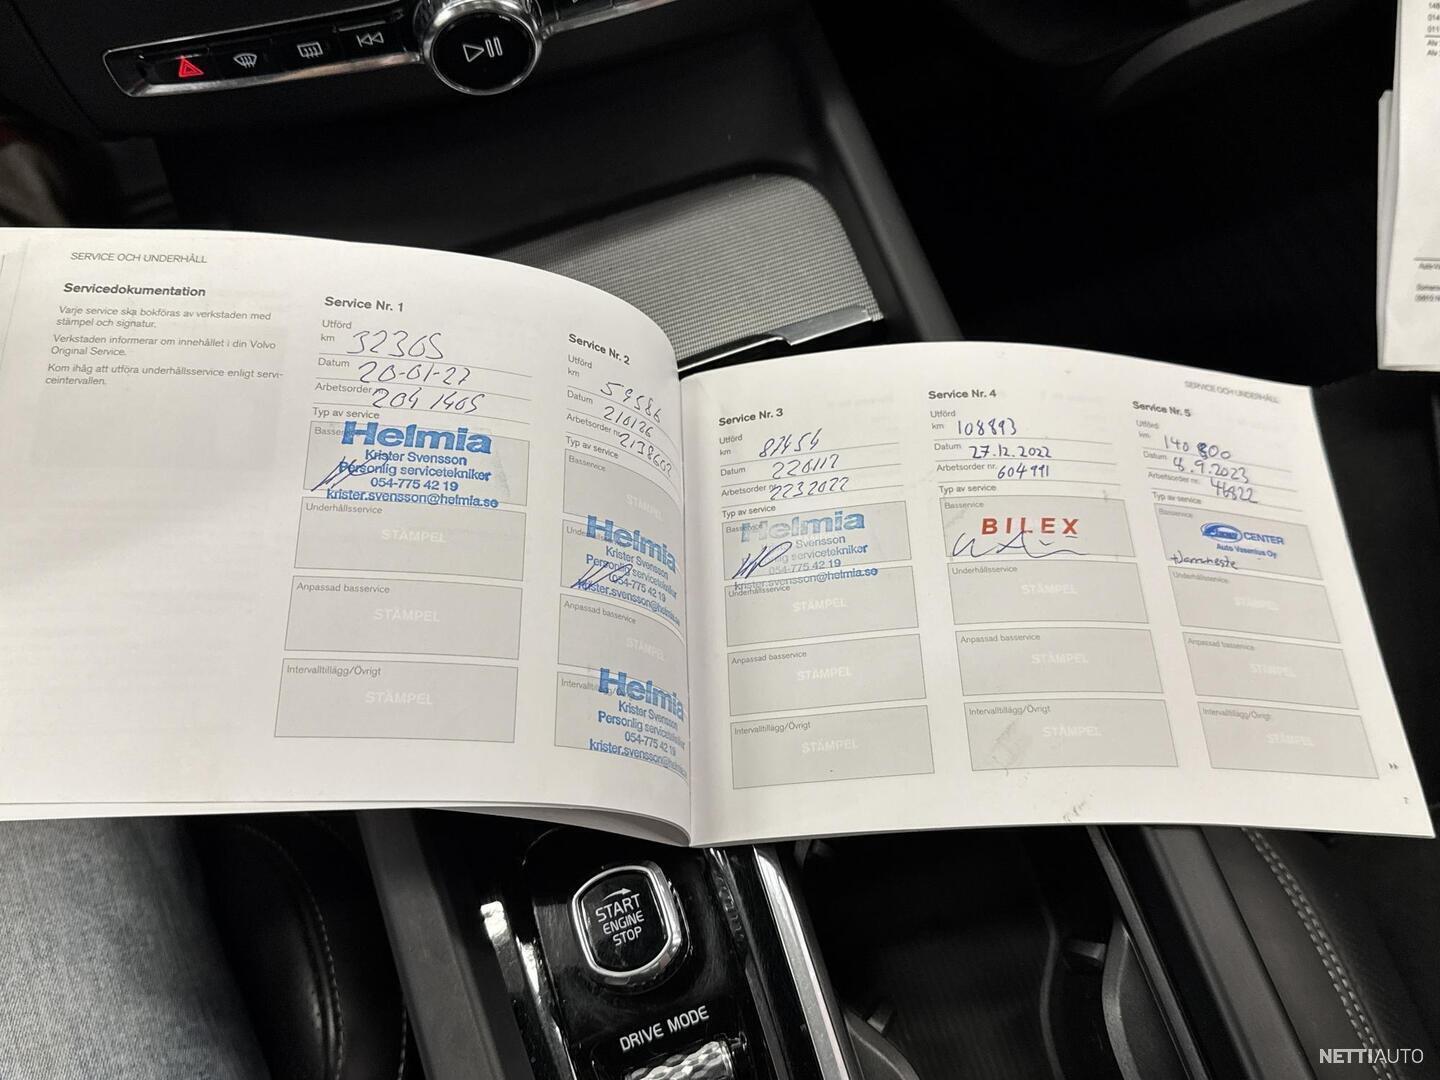 SERVICE OCH UNDERHÅLL
Servicedokumentation
Varje service ska bokföras av verkstaden med
stämpel och signatur.
Verkstaden informerar om innehållet i din Volvo
Original Service.
Kom ihåg att utföra underhållsservice enligt servi-
ceintervallen.
Service Nr. 1
Utförd
km 32305
Datum 20-01-27
Arbetsorder nr. 204 1405
Typ av service
Basservice
Helmia
Krister Svensson
Personlig servicetekniker
054-775 42 19
krister.svensson@helmia.se
Underhållsservice
STÄMPEL
Anpassad basservice
STÄMPEL
Intervalltillägg/Övrigt
STÄMPEL
Service Nr. 2
Utförd
km 59586
Datum 210126
Arbetsorder nr. 2138602
Typ av service
Basservice
STÄMPEL
Helmia
Krister Svensson
Personlig servicetekniker
054-775 42 19
krister.svensson@helmia.se
Anpassad basservice
STÄMPEL
Intervalltillägg/Övrigt
Helmia
Krister Svensson
Personlig servicetekniker
054-775 42 19
krister.svensson@helmia
SERVICE OCH UNDERHÅLL
Service Nr. 3
Utförd
km 87454
Datum 220117
Arbetsorder nr. 2232022
Typ av service
Basservice
Helmia
Svensson
servicetekniker
054-775 42 19
krister.svensson@helmia.se
Underhållsservice
STÄMPEL
Anpassad basservice
STÄMPEL
Intervalltillägg/Övrigt
STÄMPEL
Service Nr. 4
Utförd
km 108893
Datum 27.12.2022
Arbetsorder nr. 604991
Typ av service
Basservice
BILEX
Underhållsservice
STÄMPEL
Anpassad basservice
STÄMPEL
Intervalltillägg/Övrigt
STÄMPEL
Service Nr. 5
Utförd
km 140 800
Datum 8.9.2023
Arbetsorder nr. 46822
Typ av service
Basservice
CENTER
Auto Vasenius Oy
Underhållsservice
STÄMPEL
Anpassad basservice
STÄMPEL
Intervalltillägg/Övrigt
STÄMPEL
2
START
ENGINE
STOP
DRIVE MODE
NETTIAUTO